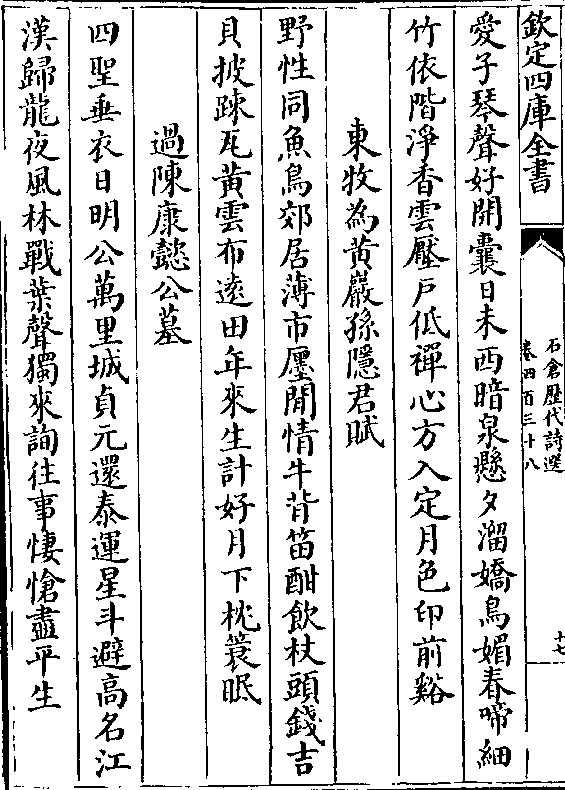 欽定四庫全書
石倉歷代詩選
卷四百三十八
十七
愛子琴聲好開囊日未西暗泉懸夕溜嬌鳥媚春啼細
竹依階淨香雲壓戶低禪心方入定月色印前谿
東牧為黃巖孫隱君賦
野性同魚鳥郊居薄市廛閒情牛背笛酣飲杖頭錢吉
貝披疎瓦黃雲布遠田年來生計好月下枕蓑眠
過陳康懿公墓
四聖垂衣日明公萬里城貞元還泰運星斗避高名江
漢歸龍夜風林戰葉聲獨來詢往事悽愴盡平生